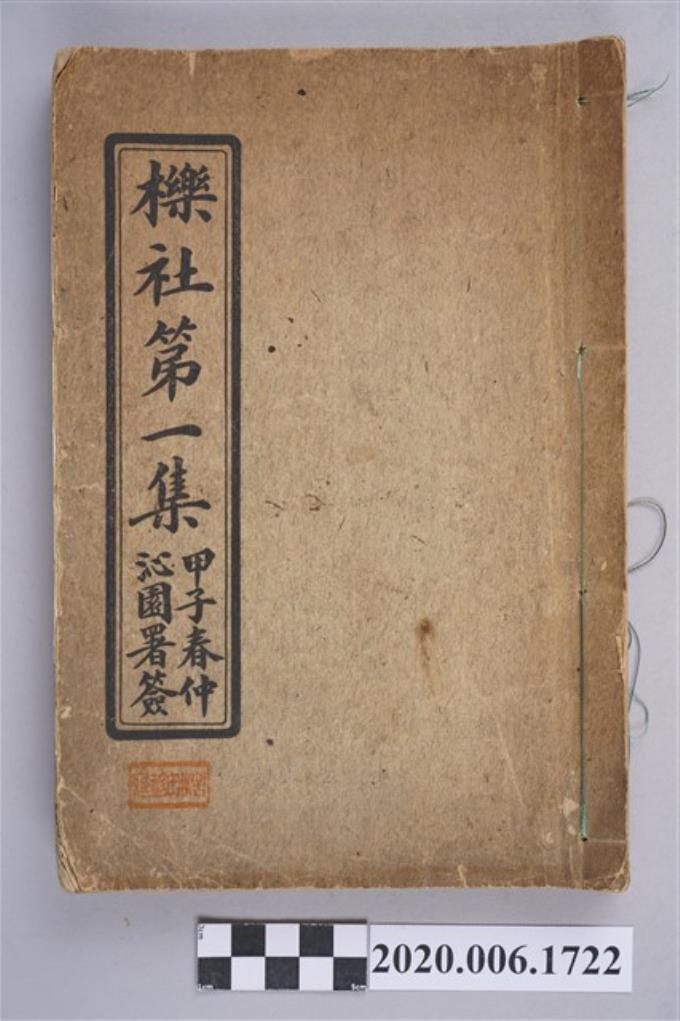 櫟社第一集
甲子春仲
沁園署簽
2020.006.1722
1cm
5cm